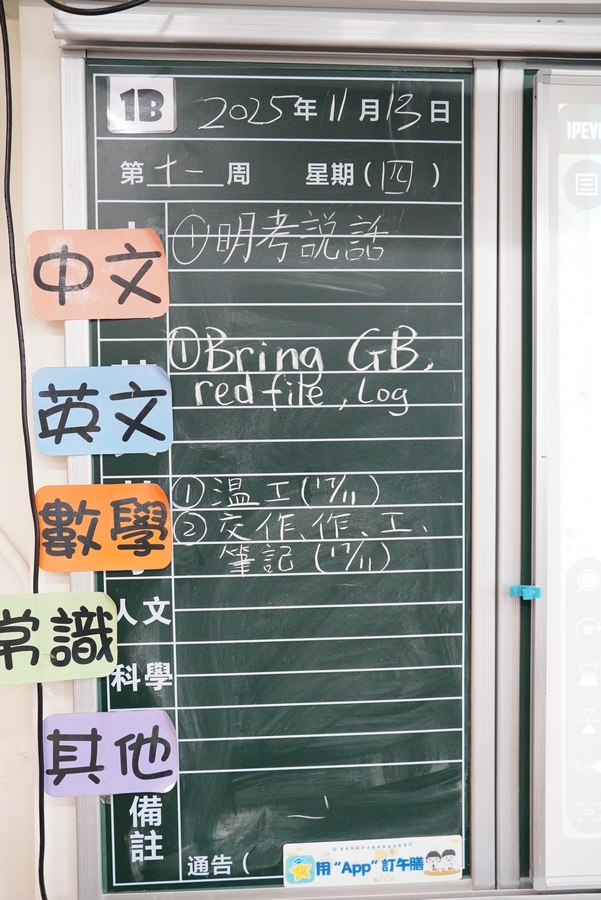 1B 2025年11月13日
第十一周 星期(四)
中文
①明考說話
英文
①Bring GB,
red file, Log
數學
①溫工(17/11)
②交作、作、工、
筆記(17/11)
常識
人文
科學
其他
備註
通告(
用“App”訂午膳
IPEV